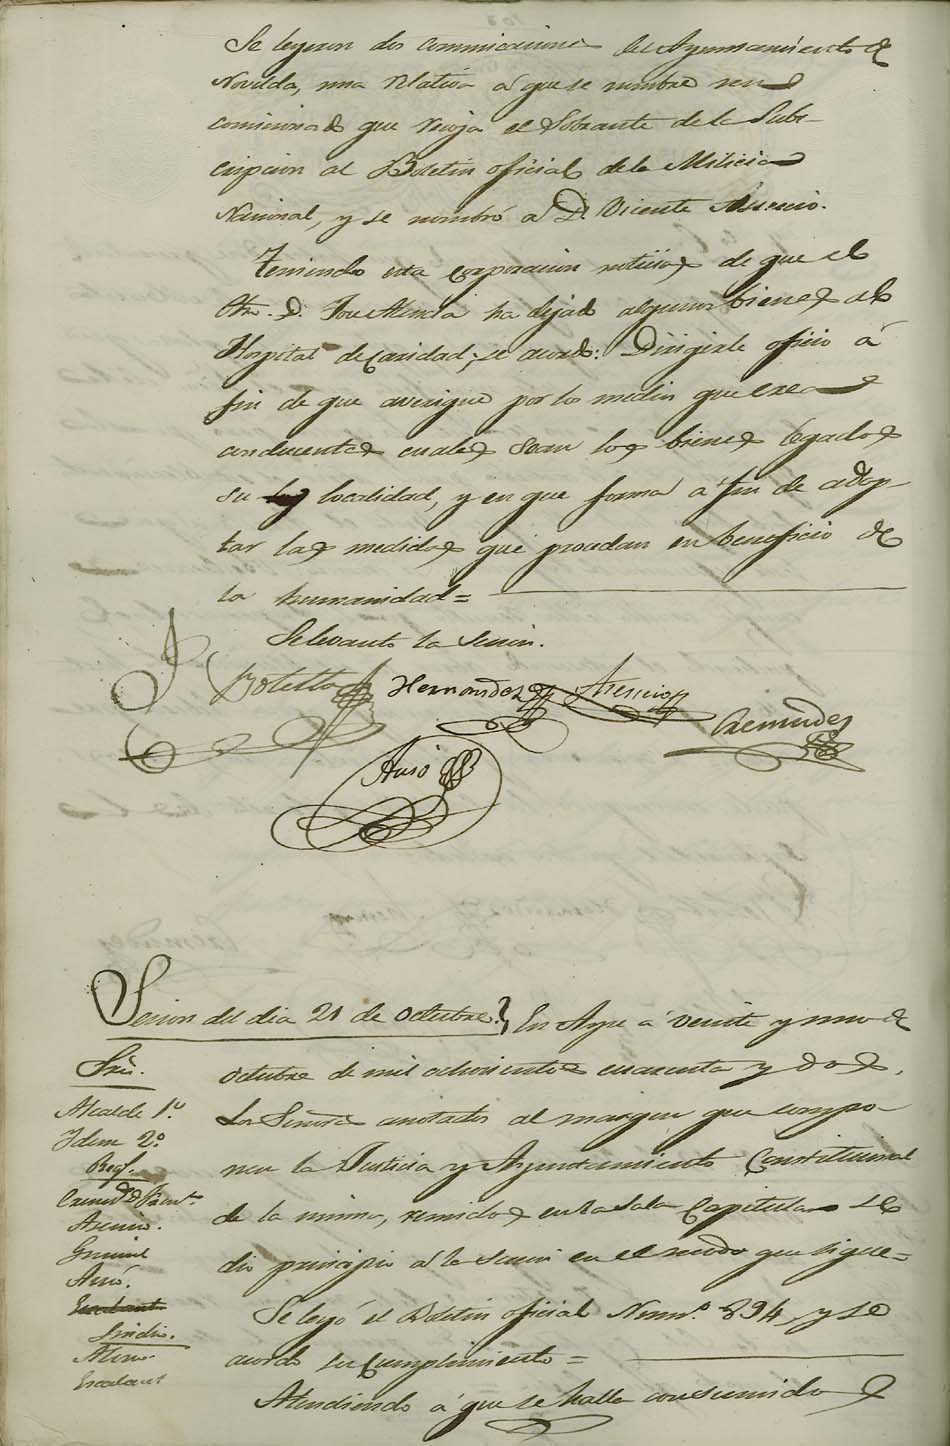 Se leyeron dos comunicaciones del Ayuntamiento de
Novelda, una relativa á que se nombre un
comisionado que recoja el Sobrante de la Subs-
cripcion al Boletin oficial de la Milicia
Nacional, y se nombró a Dn. Vicente Asencio.
Teniendo esta corporacion noticias de que el
D. José Alenda ha dejado algunos bienes al
Hospital de Caridad; se acordó: Dirigirle oficio á
fin de que averigue por los medios que crea
conducentes cuales sean los bienes legados
su localidad, y en que forma a fin de adop-
tar las medidas que procedan en beneficio de
la humanidad =
Se levanto la Sesion.
Botella Hernandez Asencio
Cremades
Ausó
Sesion del dia 21 de Octubre. En Aspe á veinte y uno de
Octubre de mil ochocientos cuarenta y dos.
Los Señores anotados al margen que compo-
nen la Justicia y Ayuntamiento Constitucional
de la misma, reunidos en la Sala Capitular se
dio principio á la Sesion en el modo que sigue =
Se leyó el Boletin oficial Num.º 894 y se
acordo su cumplimiento =
Atendiendo á que se halla consumido
Sres.
Alcalde 1.º
Idem 2.º
Reg.
Asencio.
Ausó.
Escalant
Sindico.
Escalant